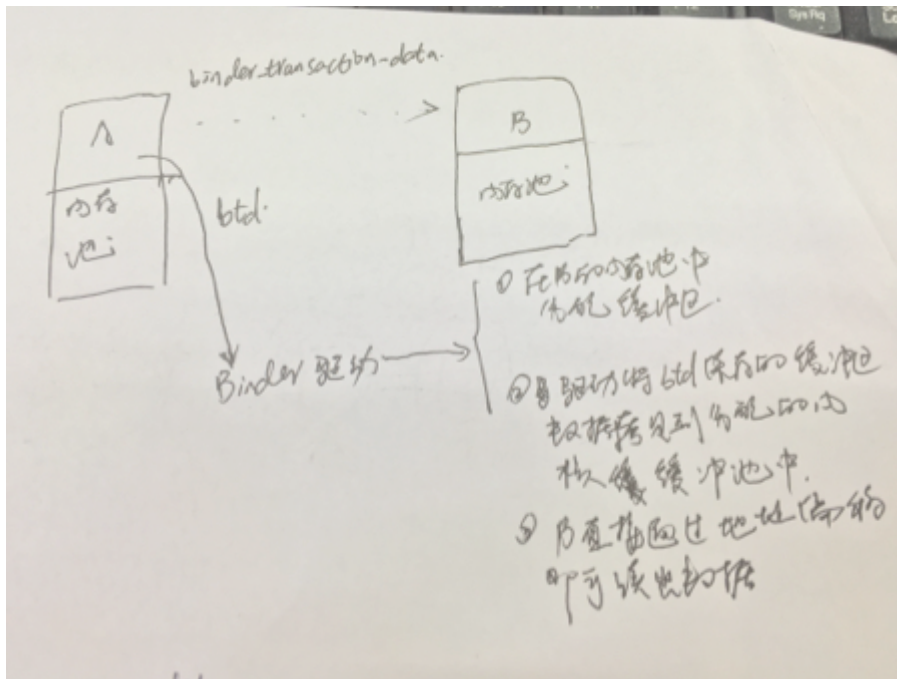 SysRq
binder_transaction_data.
A
B
内存
池
内存池
btd.
Binder 驱动
① 在B的内存池中
分配缓冲区.
② 驱动将btd保存的缓冲区
数据拷贝到分配的内
核缓冲池中.
③ B直接通过地址偏移
即可读出数据